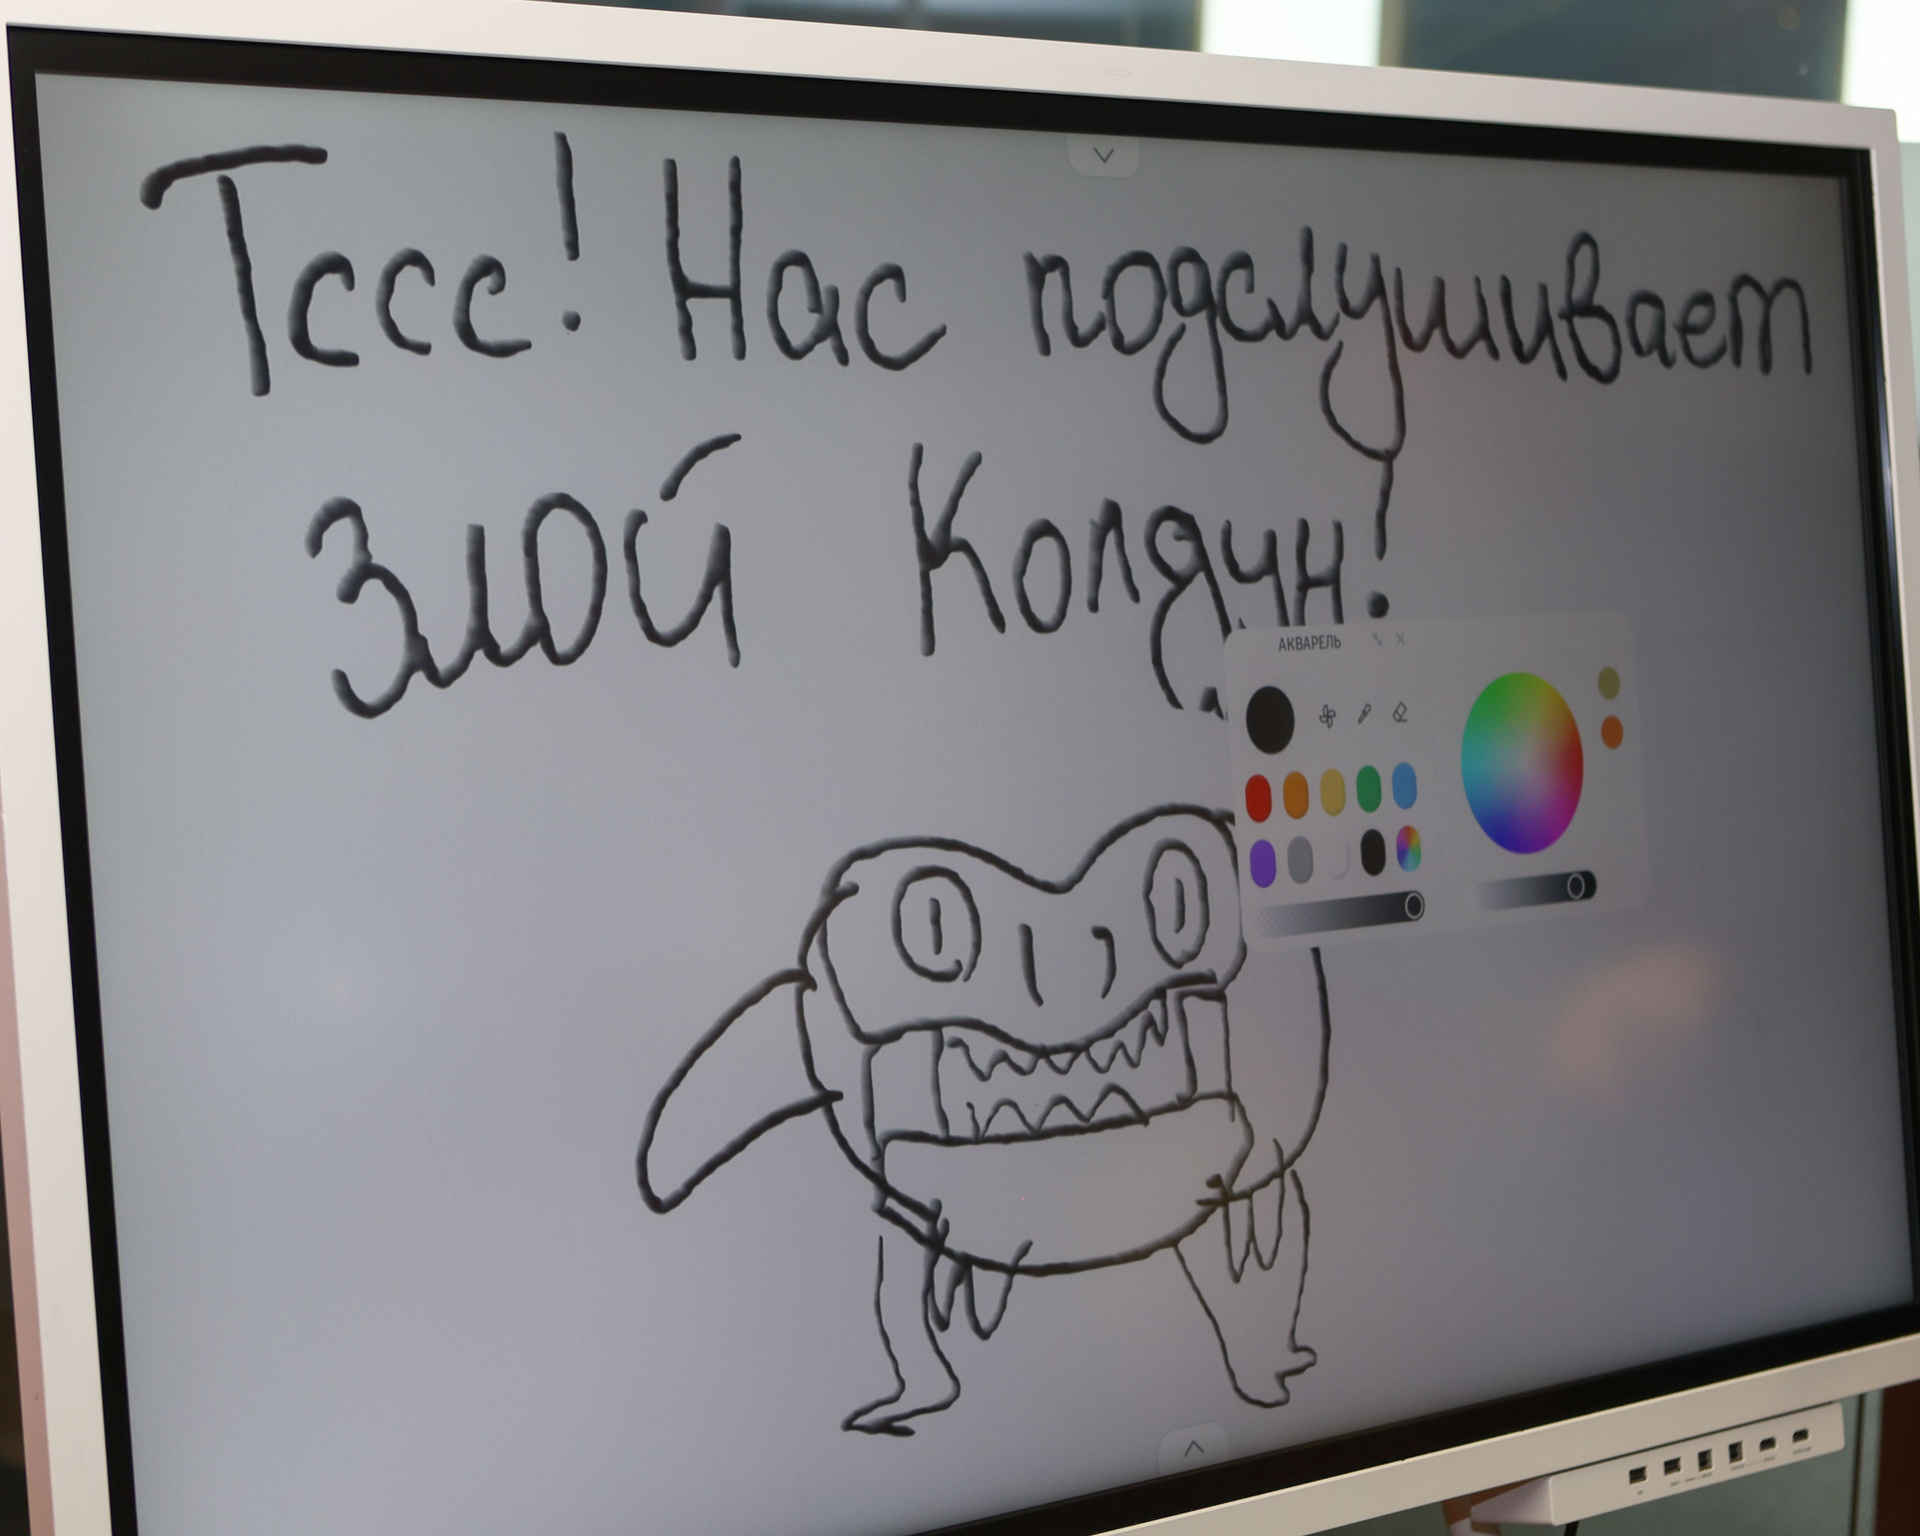 Тссс! Нас подслушивает
злой Колячн!
АКВАРЕЛЬ